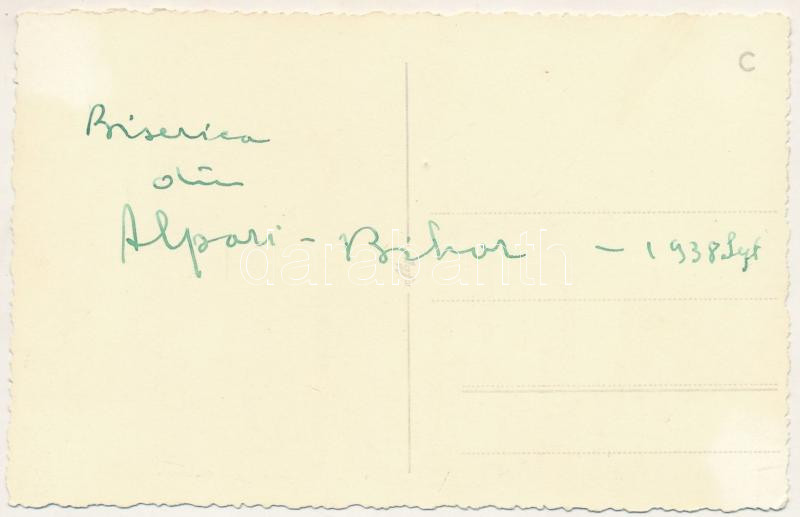 Biserica
din
Alpari - Bihor - 1938 Sept
darabanth
C